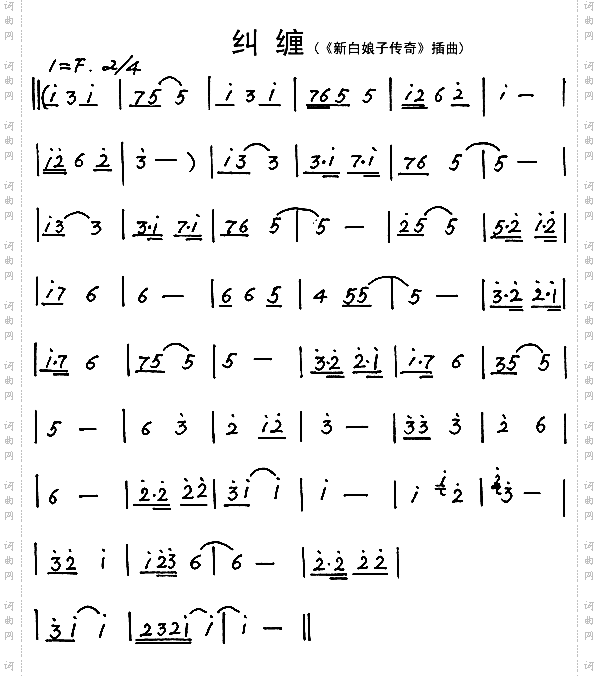 纠 缠 (《新白娘子传奇》插曲)
1=F. 2/4
‖(i̇ 3 i̇ | 7 5 5 | i̇ 3 i̇ | 7 6 5 5 | i̇ 2̇ 6 2̇ | i̇ — |
i̇ 2̇ 6 2̇ | 3̇ — ) | i̇ 3 3 | 3·i̇ 7·i̇ | 7 6 5 | 5 — |
i̇ 3 3 | 3·i̇ 7·i̇ | 7 6 5 | 5 — | 2̇ 5 5 | 5·2̇ i̇·2̇ |
i̇ 7 6 | 6 — | 6 6 5 | 4 5 5 | 5 — | 3̇·2̇ 2̇·i̇ |
i̇·7 6 | 7 5 5 | 5 — | 3̇·2̇ 2̇·i̇ | i̇·7 6 | 3 5 5 |
5 — | 6 3̇ | 2̇ i̇ 2̇ | 3̇ — | 3̇ 3̇ 3̇ | 2̇ 6 |
6 — | 2̇·2̇ 2̇ 2̇ | 3̇ i̇ i̇ | i̇ — | i̇ i̇ 2̇ | 2̇ 3̇ — |
3̇ 2̇ i̇ | i̇ 2̇ 3̇ 6 | 6 — | 2̇·2̇ 2̇ 2̇ |
3̇ i̇ i̇ | 2 3 2 i̇ i̇ | i̇ — ‖
词曲网